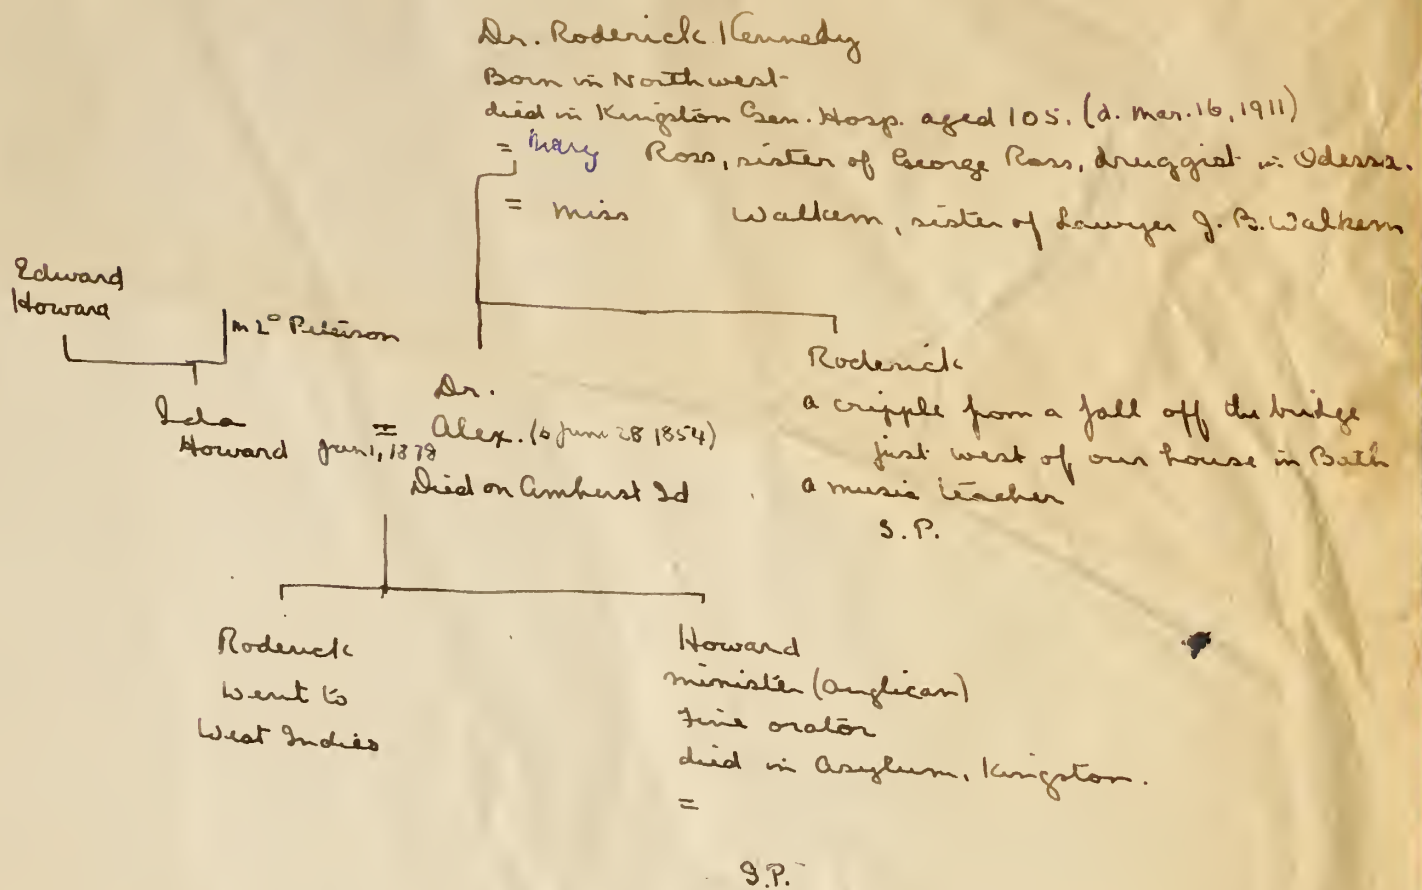 Dr. Roderick Kennedy
Born in Northwest
died in Kingston Gen. Hosp. aged 105. (d. Mar. 16, 1911)
= Mary Ross, sister of George Ross, druggist in Odessa.
= Miss Walkem, sister of Lawyer J. B. Walkem
Edward
Howard
m 2° Peterson
Ida
Howard Jun 1, 1878
=
Dr.
Alex. (b June 28 1854)
Died on Amherst Id
Roderick
a cripple from a fall off the bridge
just west of our house in Bath
a music teacher
S.P.
Roderick
Went to
West Indies
Howard
minister (Anglican)
Fine orator
died in Asylum, Kingston.
=
S.P.